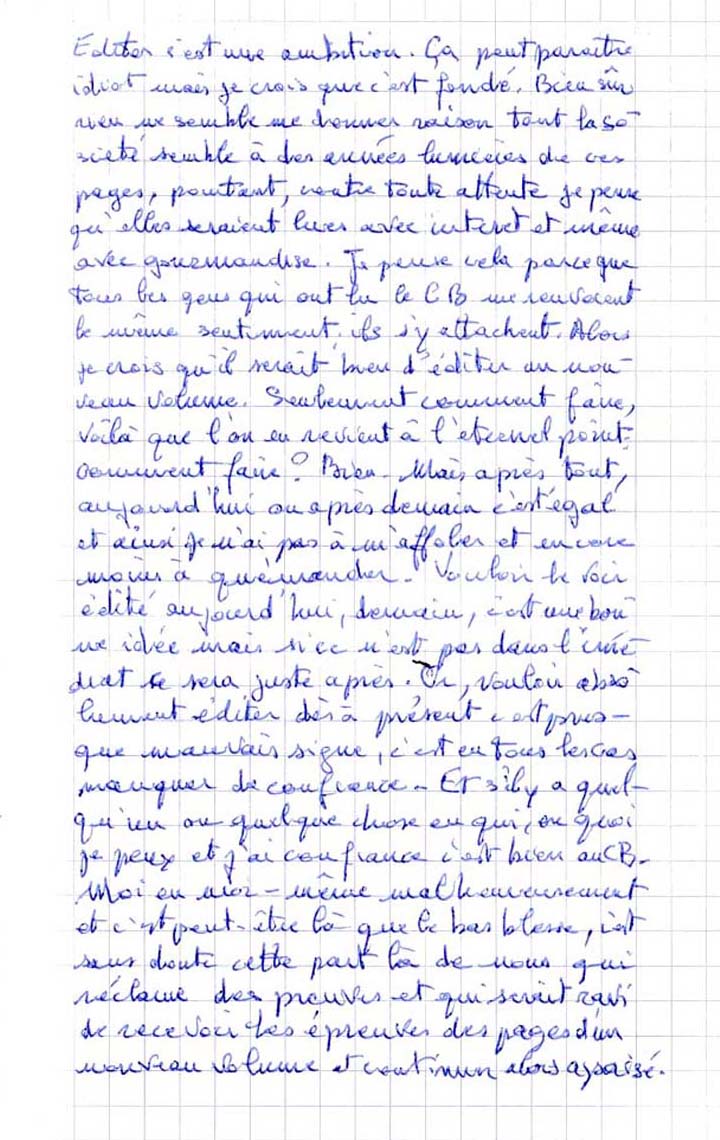 Editer c'est une ambition. Ça peut paraître
idiot mais je crois que c'est fondé. Bien sûr
rien ne semble me donner raison tout la so-
ciété semble à des années lumières de ces
pages, pourtant, contre toute attente je pense
qu'elles seraient lues avec interet et même
avec gourmandise. Je pense cela parce que
tous les gens qui ont lu le CB me renvoient
le même sentiment, ils s'y attachent. Alors
je crois qu'il serait bien d'éditer un nou-
veau volume. Seulement comment faire,
voilà que l'on en revient à l'eternel point:
comment faire? Bien. Mais après tout,
aujourd'hui ou après demain c'est égal
et ainsi je n'ai pas à m'affoler et encore
moins à quémander. Vouloir le voir
édité aujourd'hui, demain, c'est une bon-
ne idée mais si ce n'est pas dans l'immé-
diat ce sera juste après. Or, vouloir abso-
lument éditer dès à présent c'est pres-
que mauvais signe, c'est en tous les cas
manquer de confiance. Et s'il y a quel-
qu'un ou quelque chose en qui, en quoi
je peux et j'ai confiance c'est bien au CB.
Moi en moi-même malheureusement
et c'est peut-être là que le bas blesse, c'est
sans doute cette part là de nous qui
réclame des preuves et qui serait ravi
de recevoir les épreuves des pages d'un
nouveau volume et continuer alors apaisé.